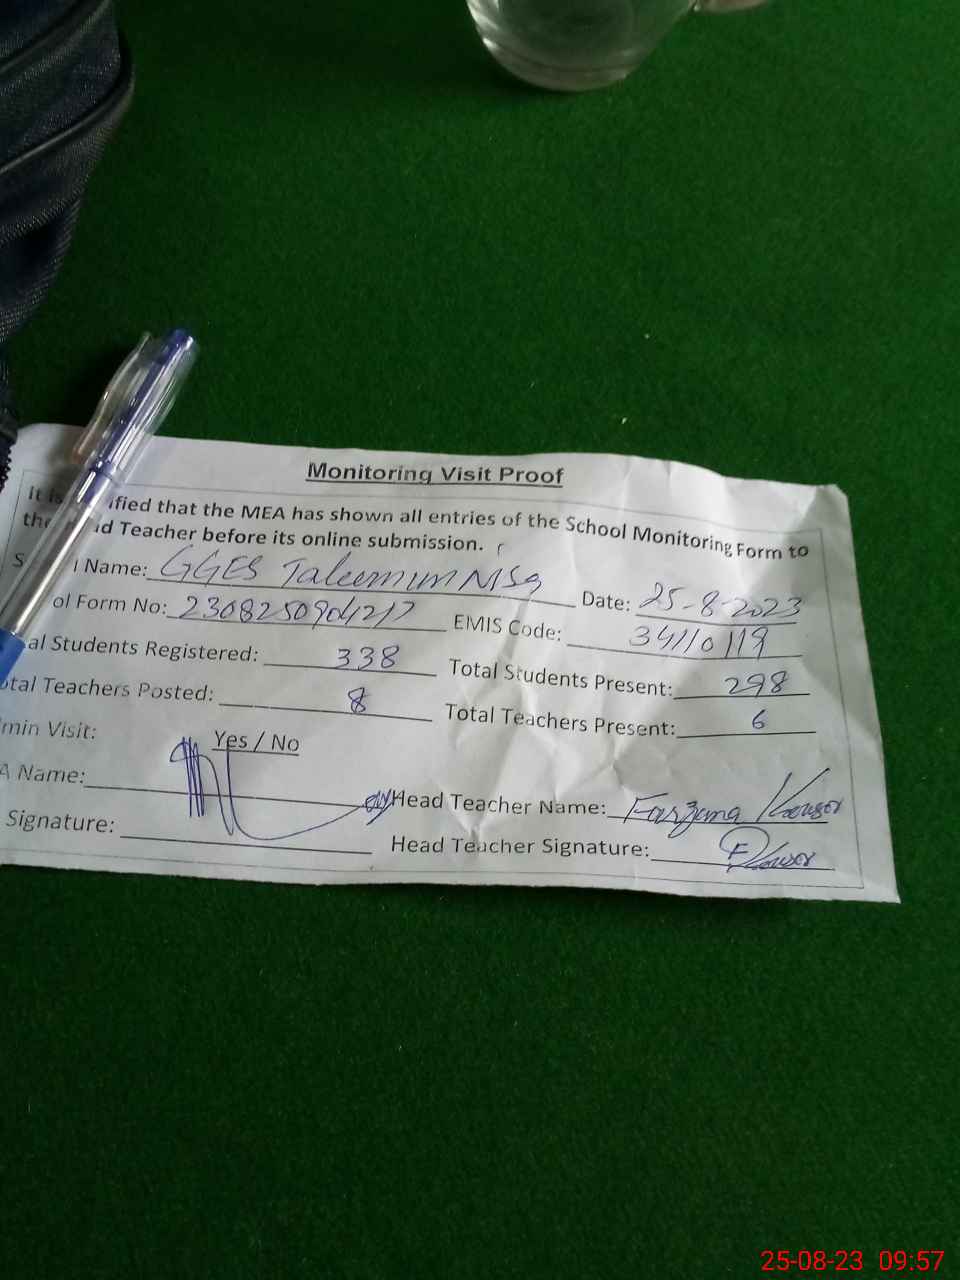 Monitoring Visit Proof
it is ified that the MEA has shown all entries of the School Monitoring Form to
the d Teacher before its online submission.
Name: GGES Taleemum MSq Date: 25-8-2023
ol Form No: 230825090421 EMIS Code: 34110119
al Students Registered: 338 Total Students Present: 298
otal Teachers Posted: 8 Total Teachers Present: 6
min Visit: Yes / No
A Name: Head Teacher Name: Farzana Kousor
Signature: Head Teacher Signature: Kousor
25-08-23 09:57